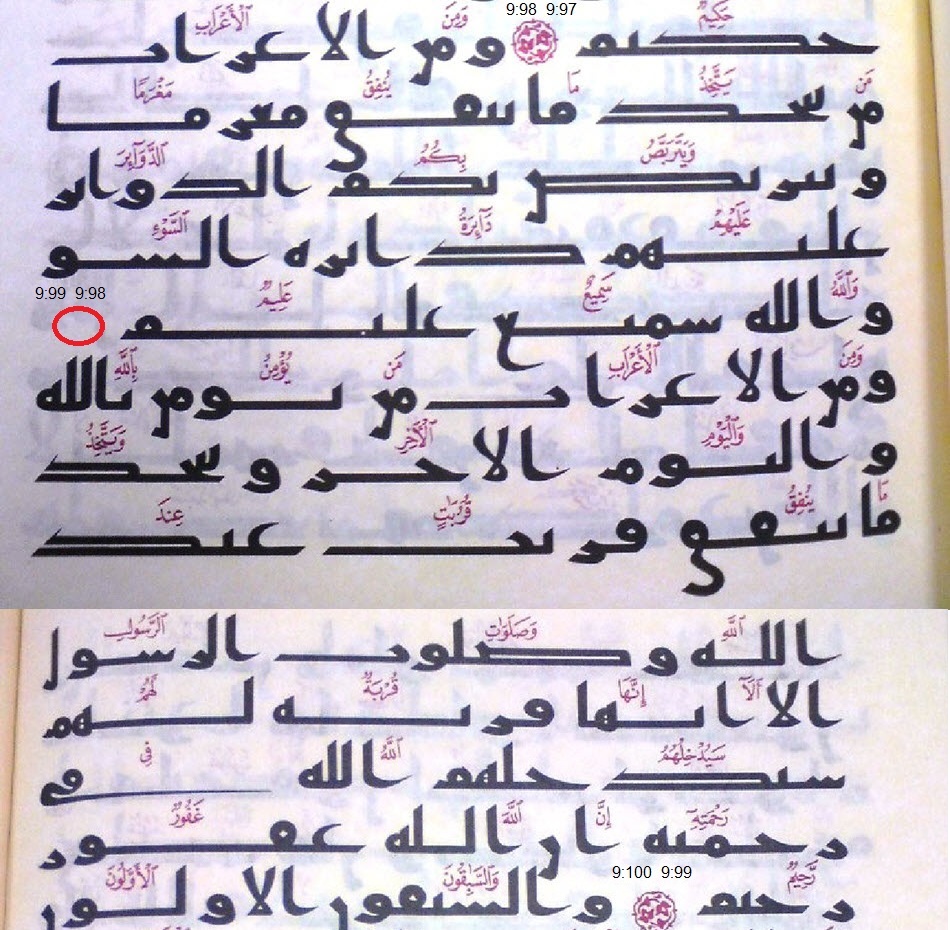 9:98 9:97
حَكِيمٌ وَمِنَ ٱلْأَعْرَابِ
حكيم ومن الاعراب
مَن يَتَّخِذُ مَا يُنفِقُ مَغْرَمًا
من يتخذ ما ينفق مغرما
وَيَتَرَبَّصُ بِكُمُ ٱلدَّوَآئِرَ
ويتربص بكم الدواير
عَلَيْهِمْ دَآئِرَةُ ٱلسَّوْءِ
عليهم دايره السو
9:99 9:98
وَٱللَّهُ سَمِيعٌ عَلِيمٌ
والله سميع عليم
وَمِنَ ٱلْأَعْرَابِ مَن يُؤْمِنُ بِٱللَّهِ
ومن الاعراب من يومن بالله
وَٱلْيَوْمِ ٱلْآخِرِ وَيَتَّخِذُ
واليوم الاخر ويتخذ
مَا يُنفِقُ قُرُبَٰتٍ عِندَ
ما ينفق قربت عند
ٱللَّهِ وَصَلَوَٰتِ ٱلرَّسُولِ
الله وصلوت الرسول
أَلَآ إِنَّهَا قُرْبَةٌ لَّهُمْ
الا انها قربه لهم
سَيُدْخِلُهُمُ ٱللَّهُ فِى
سيدخلهم الله في
رَحْمَتِهِۦٓ إِنَّ ٱللَّهَ غَفُورٌ
رحمته ان الله غفور
9:100 9:99
رَّحِيمٌ وَٱلسَّٰبِقُونَ ٱلْأَوَّلُونَ
رحيم والسبقون الاولون